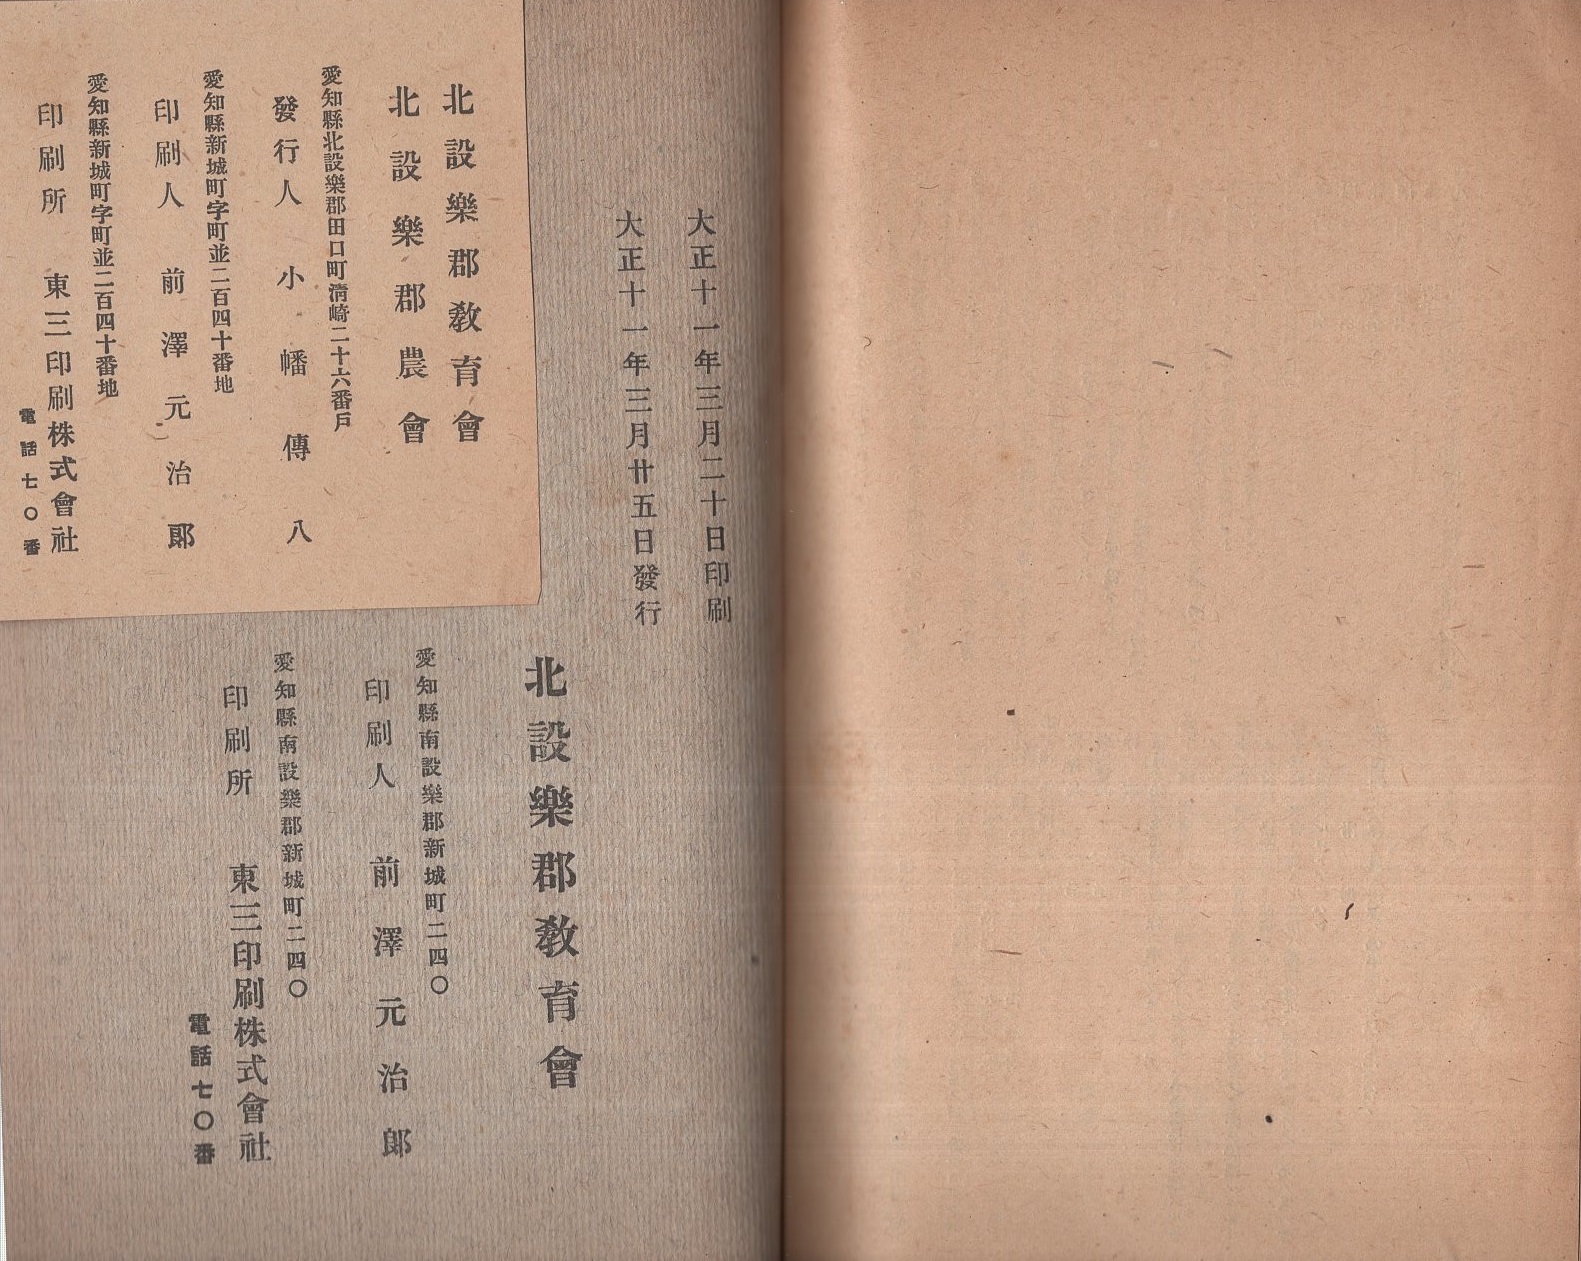 大正十一年三月二十日印刷
大正十一年三月廿五日發行
北設樂郡敎育會
愛知縣南設樂郡新城町二四〇
印刷人 前澤元治郎
愛知縣南設樂郡新城町二四〇
印刷所 東三印刷株式會社
電話七〇番
北設樂郡敎育會
北設樂郡農會
愛知縣北設樂郡田口町淸崎二十六番戶
發行人 小幡傳八
愛知縣新城町字町並二百四十番地
印刷人 前澤元治郞
愛知縣新城町字町並二百四十番地
印刷所 東三印刷株式會社
電話七〇番